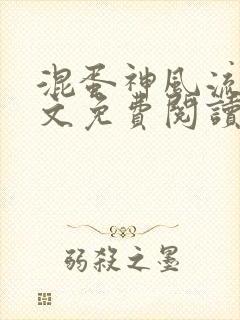 混蛋神風流
文免費閱讀
弱殺之墨